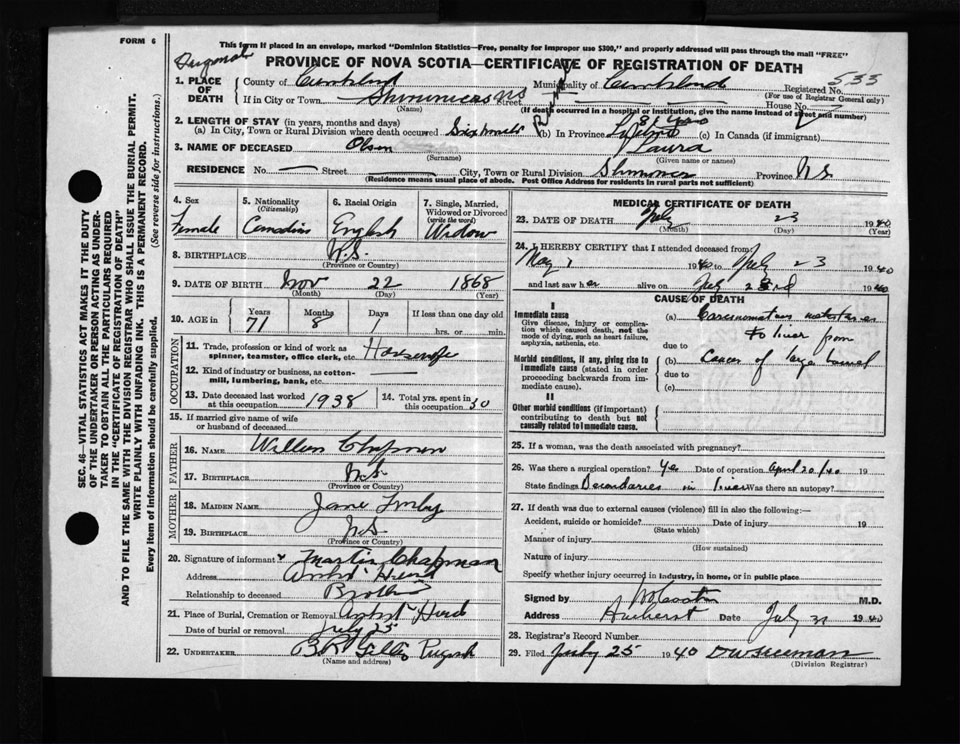 FORM 6
This form if placed in an envelope, marked "Dominion Statistics—Free, penalty for improper use $300," and properly addressed will pass through the mail "FREE"
PROVINCE OF NOVA SCOTIA—CERTIFICATE OF REGISTRATION OF DEATH
533
1. PLACE OF DEATH
County of Cumberland Municipality of Cumberland Registered No.
(For use of Registrar General only)
If in City or Town N S Street House No.
(Name) (If death occurred in a hospital or institution, give the name instead of street and number)
2. LENGTH OF STAY (in years, months and days)
(a) In City, Town or Rural Division where death occurred Six months (b) In Province (c) In Canada (if immigrant)
3. NAME OF DECEASED Olsen Laura
(Surname) (Given name or names)
RESIDENCE No. — Street City, Town or Rural Division Province N.S.
(Residence means usual place of abode. Post Office Address for residents in rural parts not sufficient)
4. Sex
Female
5. Nationality (Citizenship)
Canadian
6. Racial Origin
English
7. Single, Married, Widowed or Divorced (write the word)
Widow
8. BIRTHPLACE N.S.
(Province or Country)
9. DATE OF BIRTH Nov 22 1868
(Month) (Day) (Year)
10. AGE in Years Months Days If less than one day old
71 8 1 hrs. or min.
OCCUPATION
11. Trade, profession or kind of work as spinner, teamster, office clerk, etc. Housewife
12. Kind of industry or business, as cotton-mill, lumbering, bank, etc. —
13. Date deceased last worked at this occupation 1938
14. Total yrs. spent in this occupation 50
15. If married give name of wife or husband of deceased
FATHER
16. NAME William Chapman
17. BIRTHPLACE N.S.
(Province or Country)
MOTHER
18. MAIDEN NAME Jane
19. BIRTHPLACE N S
(Province or Country)
20. Signature of informant Martin Chapman
Address Amhst Head
Relationship to deceased Brother
21. Place of Burial, Cremation or Removal Amhst Head
Date of burial or removal July 25
22. UNDERTAKER
(Name and address)
MEDICAL CERTIFICATE OF DEATH
23. DATE OF DEATH July 23 1940
(Month) (Day) (Year)
24. I HEREBY CERTIFY that I attended deceased from
May 1 1940 to July 23 1940
and last saw her alive on July 23rd 1940
CAUSE OF DEATH
I
Immediate cause
Give disease, injury or complication which caused death, not the mode of dying, such as heart failure, asphyxia, asthenia, etc.
(a) Carcinomatous metastases
to liver from
due to
Morbid conditions, if any, giving rise to immediate cause (stated in order proceeding backwards from immediate cause).
(b) Cancer of large bowel
due to
(c)
II
Other morbid conditions (if important) contributing to death but not causally related to immediate cause.
25. If a woman, was the death associated with pregnancy?
26. Was there a surgical operation? Yes Date of operation April 20/40 19
State findings Secondaries in liver Was there an autopsy?
27. If death was due to external causes (violence) fill in also the following:—
Accident, suicide or homicide? Date of injury 19
(State which)
Manner of injury
(How sustained)
Nature of injury
Specify whether injury occurred in industry, in home, or in public place
Signed by M.D.
Address Amherst Date July 1940
28. Registrar's Record Number
29. Filed July 25 1940
(Division Registrar)
SEC. 46—VITAL STATISTICS ACT MAKES IT THE DUTY
OF THE UNDERTAKER OR PERSON ACTING AS UNDER-
TAKER TO OBTAIN ALL THE PARTICULARS REQUIRED
IN THE "CERTIFICATE OF REGISTRATION OF DEATH"
AND TO FILE THE SAME WITH THE DIVISION REGISTRAR WHO SHALL ISSUE THE BURIAL PERMIT.
WRITE PLAINLY WITH UNFADING INK. THIS IS A PERMANENT RECORD.
Every item of information should be carefully supplied. (See reverse side for instructions.)